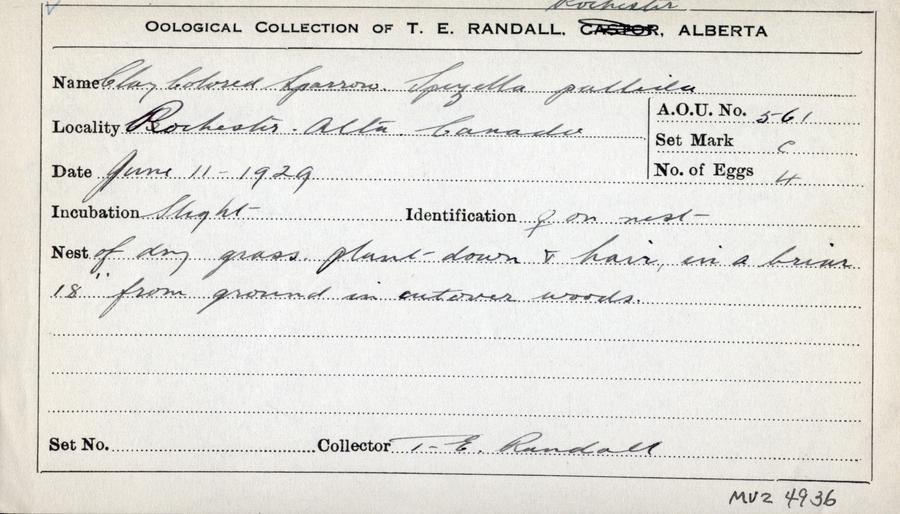 Rochester
OOLOGICAL COLLECTION OF T. E. RANDALL, CASPOR, ALBERTA
Name Clay Colored Sparrow. Spizella pallida
Locality Rochester. Alta. Canada
A.O.U. No. 561
Set Mark C
Date June 11 - 1929
No. of Eggs 4
Incubation Slight Identification ♀ on nest
Nest of dry grass. plant-down & hair, in a briar
18" from ground in cutover woods.
Set No. Collector T. E. Randall
MVZ 4936